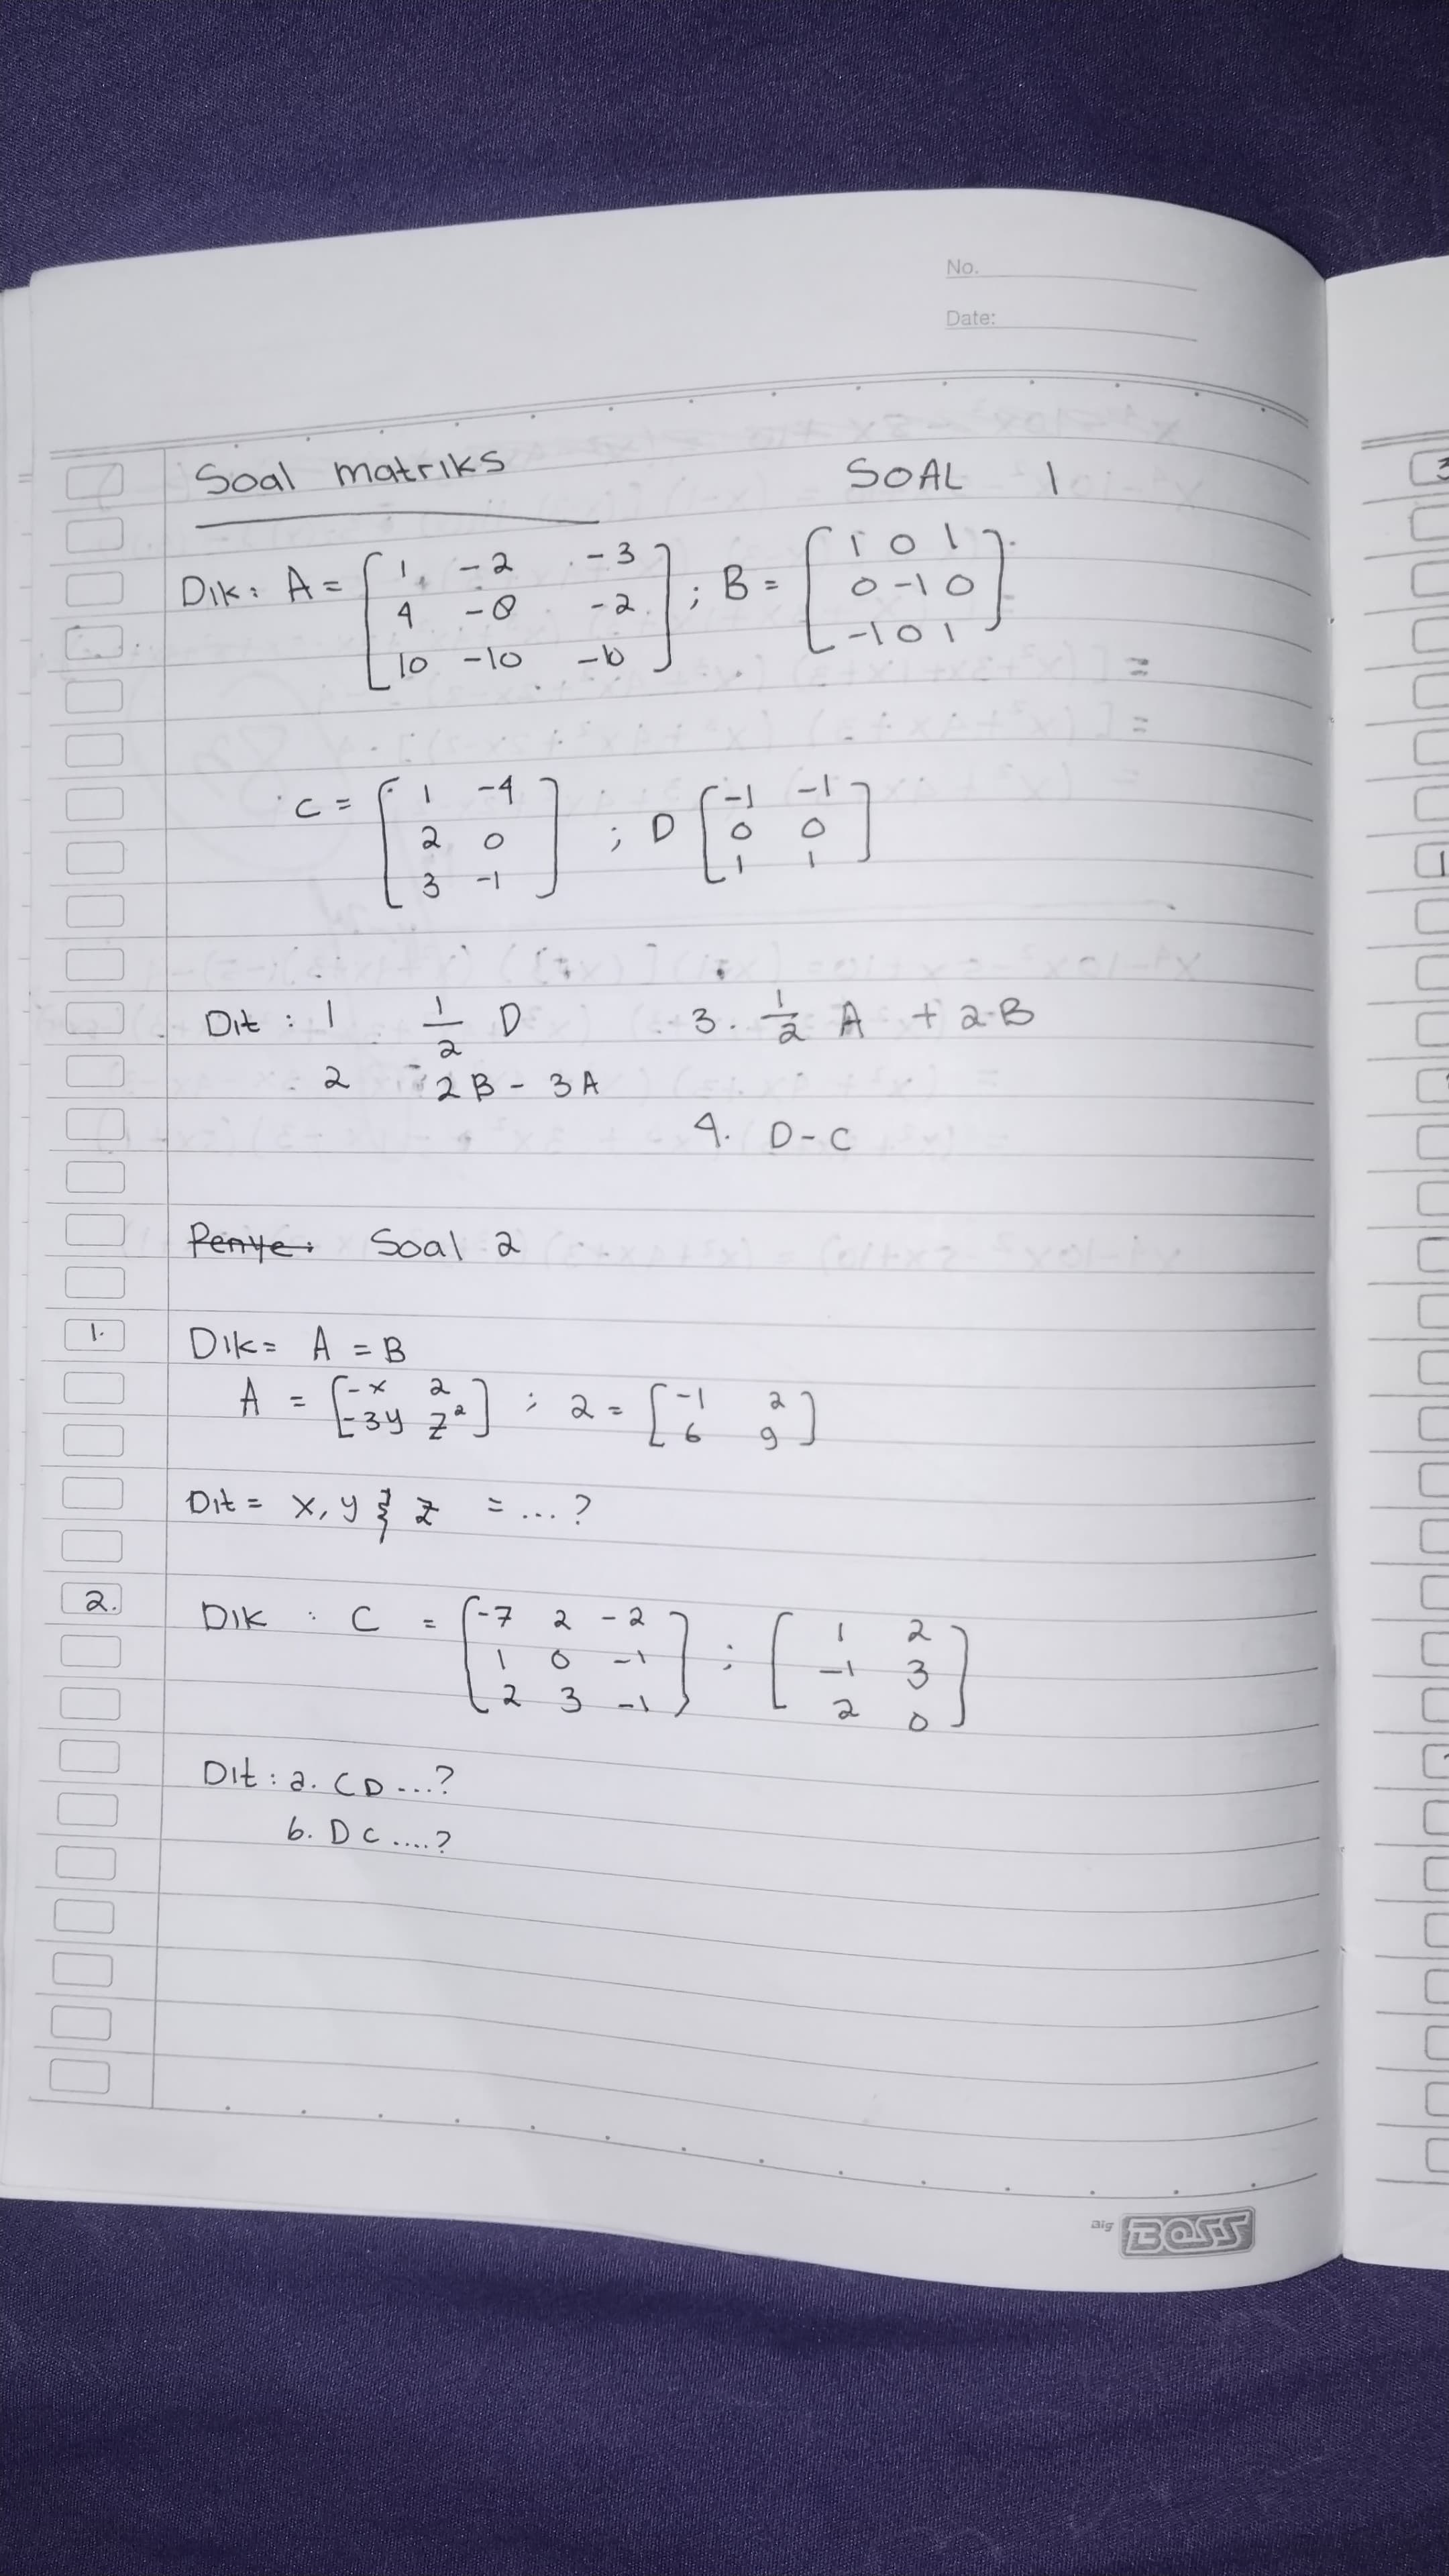 No.
Date:
Soal matriks SOAL 1
Dik: A = [ 1 -2 -3 ] ; B = [ 1 0 1 ]
4 -8 -2 0 -1 0
10 -10 -10 -1 0 1
C = [ 1 -4 ] ; D [ -1 -1 ]
2 0 0 0
3 -1 1 1
Dit : 1 1/2 D 3. 1/2 A + 2B
2 -2B - 3A
4. D - C
Penye: Soal 2
1. Dik = A = B
A = [ -x 2 ] ; 2 = [ -1 2 ]
-3y z² 6 9
Dit = x, y } z = ...?
2. Dik : C = [ -7 2 -2 ] ; [ 1 2 ]
1 0 -1 -1 3
2 3 -1 2 0
Dit : a. CD ...?
b. DC ....?
Big BOSS